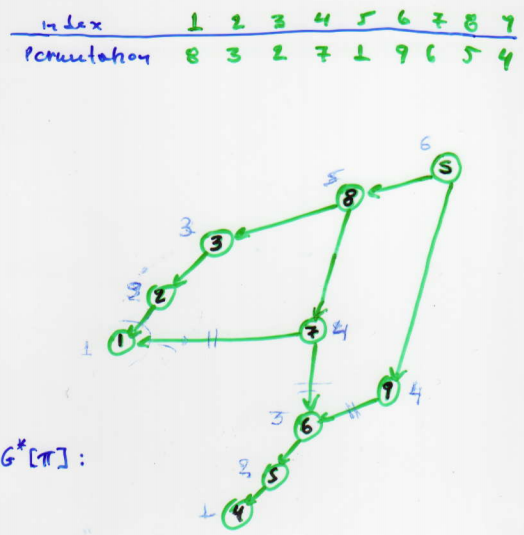 index 1 2 3 4 5 6 7 8 9
Permutation 8 3 2 7 1 9 6 5 4
6
S
5
8
3
3
2
7 4
1 1
9 4
3 6
G*[π] :
2 5
1 4